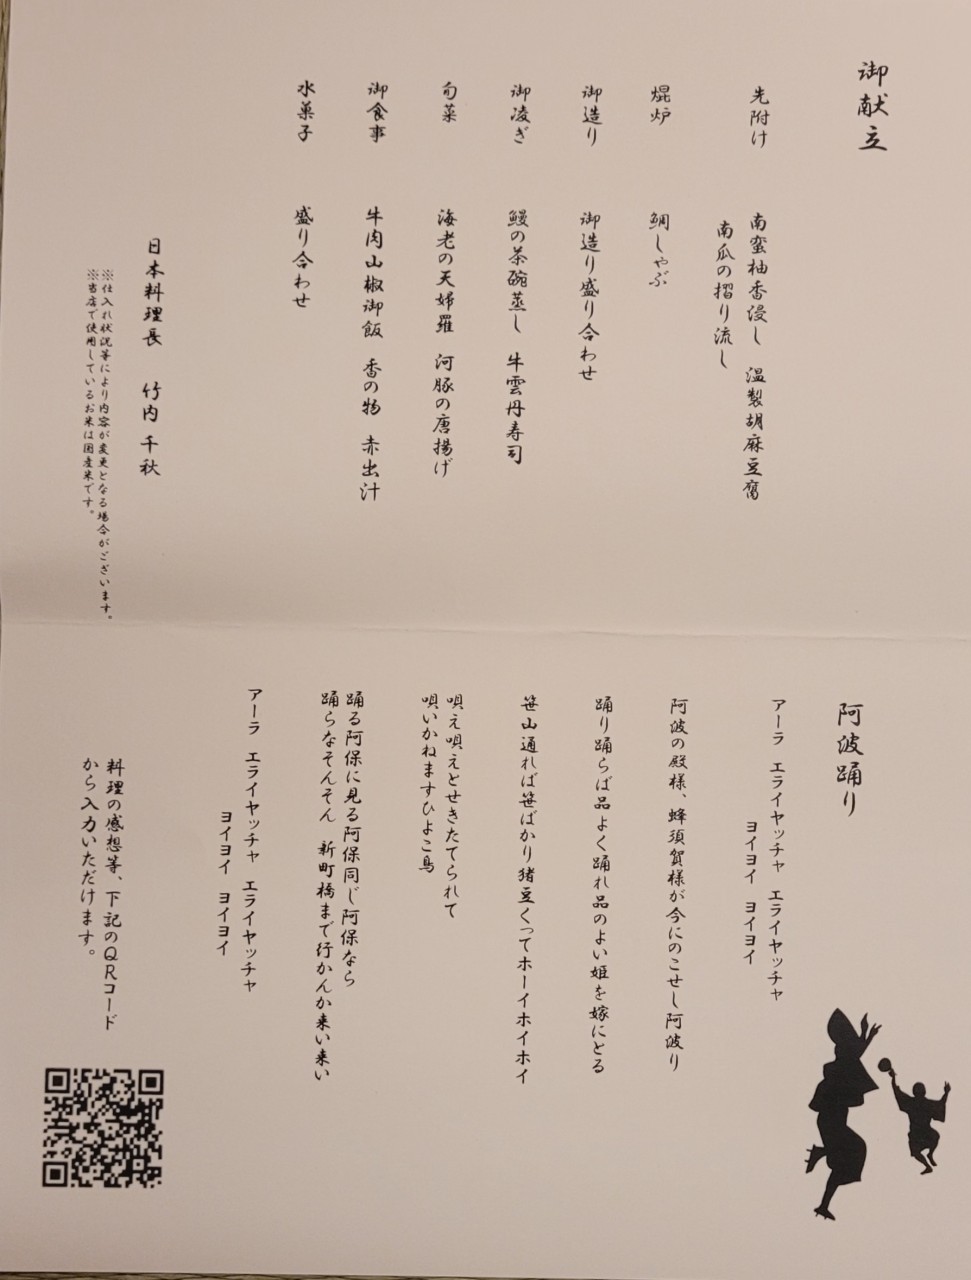 御献立
先附け　南蛮柚香浸し　温製胡麻豆腐
南瓜の摺り流し
焜炉　鯛しゃぶ
御造り　御造り盛り合わせ
御凌ぎ　鰻の茶碗蒸し　牛雲丹寿司
旬菜　海老の天婦羅　河豚の唐揚げ
御食事　牛肉山椒御飯　香の物　赤出汁
水菓子　盛り合わせ
日本料理長　竹内 千秋
※仕入れ状況等により内容が変更となる場合がございます。
※当店で使用しているお米は国産米です。
阿波踊り
アーラ　エライヤッチャ　エライヤッチャ
ヨイヨイ　ヨイヨイ
阿波の殿様、蜂須賀様が今にのこせし阿波り
踊り踊らば品よく踊れ品のよい姫を嫁にとる
笹山通れば笹ばかり猪豆くってホーイホイホイ
唄え唄えとせきたてられて
唄いかねますひよこ鳥
踊る阿保に見る阿保同じ阿保なら
踊らなそんそん　新町橋まで行かんか来い来い
アーラ　エライヤッチャ　エライヤッチャ
ヨイヨイ　ヨイヨイ
料理の感想等、下記のQRコード
から入力いただけます。